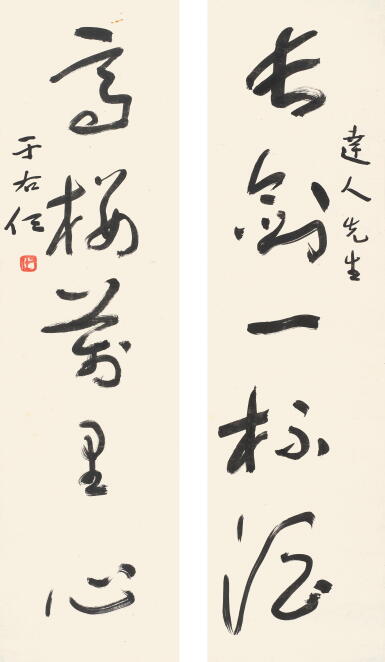 達人先生
長劍一杯酒
高樓萬里心
于右任